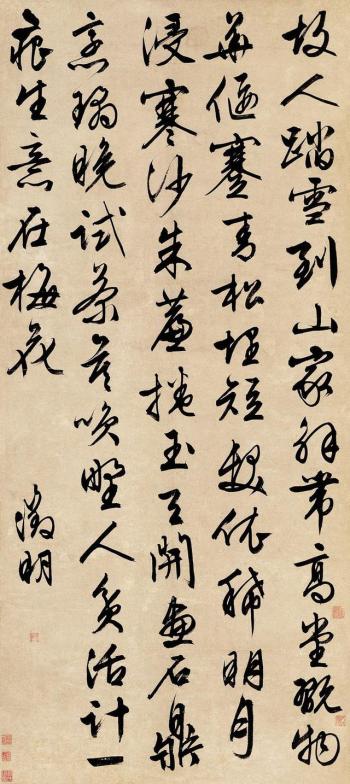 故人踏雪到山家解帶高堂玩物
華偃蹇青松埋短依稀明月
浸寒沙朱簾捲玉天開畫石鼎
烹晚試茶莫喚野人貧活計一
痕生意在梅花
徵明